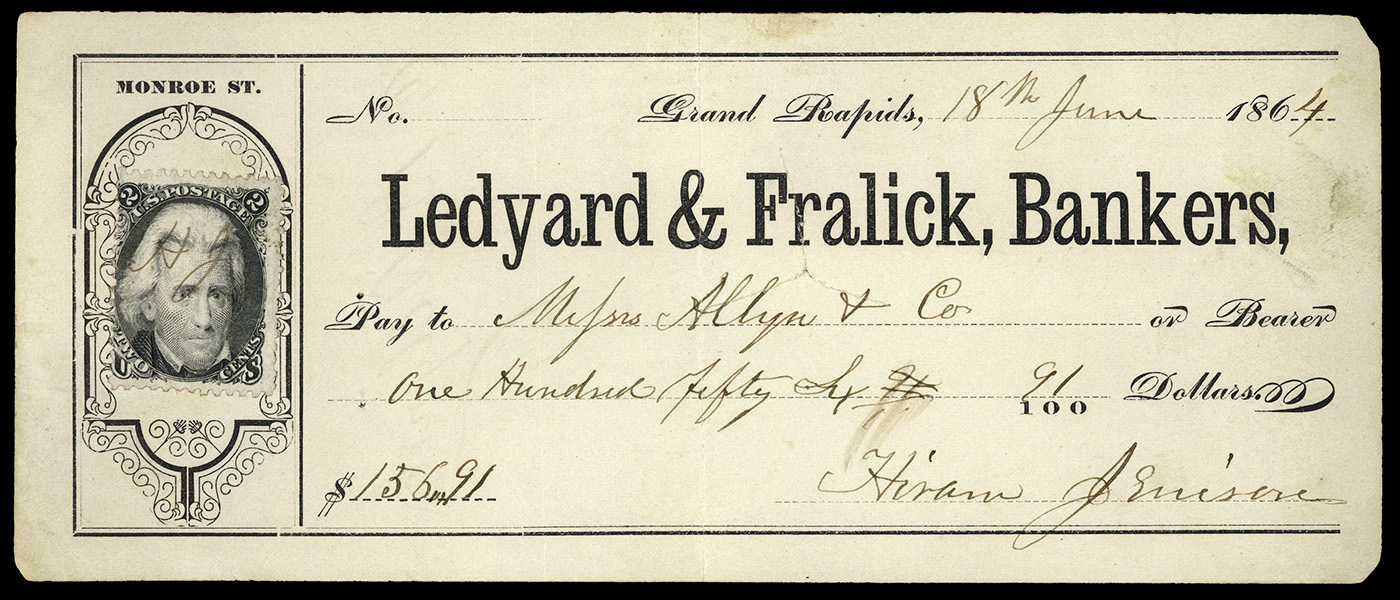 MONROE ST.
No. Grand Rapids, 18th June 1864
2 U.S. POSTAGE 2
H J
TWO CENTS
U S
Ledyard & Fralick, Bankers,
Pay to Messrs Allyn & Co or Bearer
One Hundred fifty Six 91/100 Dollars.
$156.91
Hiram Jenison